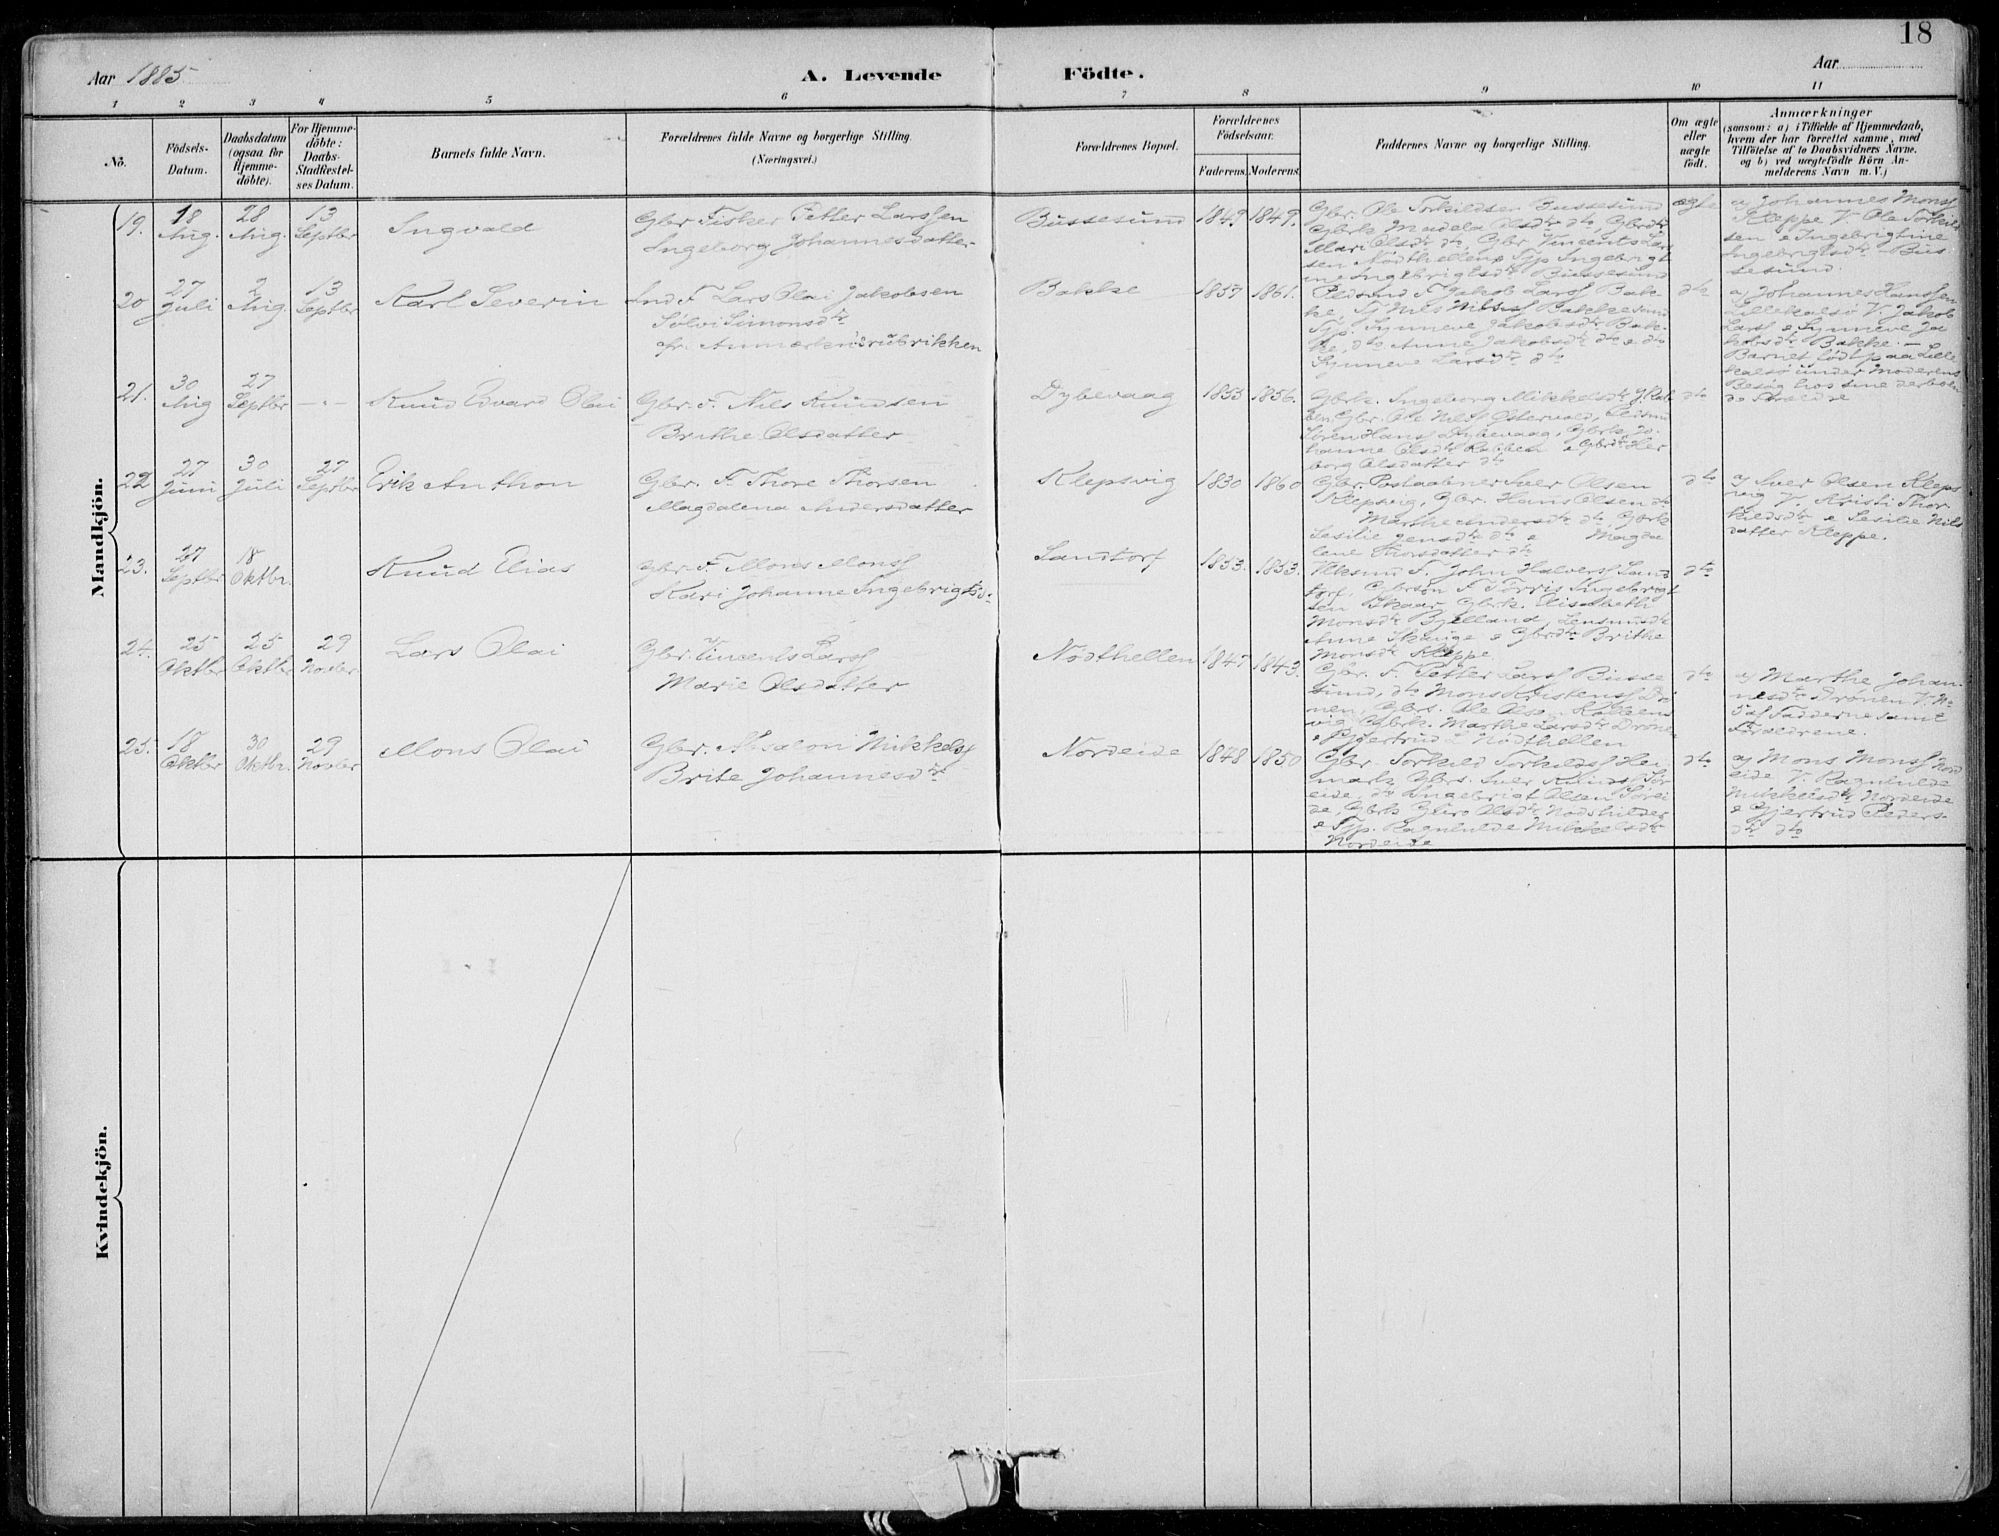 18
Aar 1885
A. Levende Födte.
Aar
1 2 3 4 5 6 7 8 9 10 11
No.
Födsels-Datum.
Daabsdatum (ogsaa for Hjemme-döbte).
For Hjemme-döbte: Daabs-Stadfæstel-ses Datum.
Barnets fulde Navn.
Forældrenes fulde Navne og borgerlige Stilling.
(Næringsvei.)
Forældrenes Bopæl.
Forældrenes Födselsaar.
Faderens. Moderens.
Faddernes Navne og borgerlige Stilling.
Om ægte eller uægte födt.
Anmærkninger
(saasom: a) i Tilfælde af Hjemmedaab, hvem der har forrettet samme, med Tilföielse af to Daabsvidners Navne, og b) ved uægtefödte Börn An-melderens Navn m. V.)
Mandkjön.
19. 18 Aug. 28 Aug. 13 Septbr Ingvald
Gbr Fisker Petter Larssen
Ingeborg Johannesdatter
Bussesund 1849 1849.
Gbr. Ole Torkildsen Bussesund
Gbrk Madela Olsdtr dto Gbrdtr
Mari Olsdtr dto, Gbr Vincents Lars
sen Nödthellen Tjp Ingebrigt
ine Ingebrigtsdtr Bussesund
ægte
a) Johannes Monss
Kleppe V Ole Torkild
sen & Ingebrigtine
Ingebrigtsdtr Bus
sesund.
20 27 Juli 2 Aug. 13 Septbr Karl Severin
Ind F. Lars Olai Jakobsen
Sölvi Simonsdtr
cfr Anmærkn.srubrikken
Bakke 1857 1861.
F Jakob Larss Bak-
ke, Tj Nils Nilss Bakkesund
Tjp. Synneve Jakobsdtr Bak-
ke, dto Anne Jakobsdtr dto & dto
Synneve Larsdtr dto
dto
a) Johannes Hanssen
Lillekalsö V. Jakob
Larss & Synneve Ja
kobsdtr Bakke. —
Barnet födt paa Lille
kalsö under Moderens
Besög hos sine derboen
de Foreldre
21. 30 Aug 27 Septbr — Knud Edvard Olai
Gbr. F. Nils Knudsen
Brithe Olsdatter
Dybevaag 1853 1856.
Gbrk. Ingeborg Mikkelsdtr
Gbr. Ole Nilss Östervold,
Sören Hanss Dybevaag, Gbrk Jo
hanne Olsdtr Rabben & Gbrdtr Her
borg Olsdatter dto
dto
22 27 Juni 30 Juli 27 Septbr Erik Anthon
Gbr. F. Thore Thorsen
Magdalena Andersdatter
Klepsvig 1830 1860
Gbr. Postaabner Iver Olsen
Klepsvig, Gbr. Hans Olsen dto
Marthe Andersdtr dto, Gbrk
Sesilie Jensdtr dto & Magda
lene Thorsdatter dto
dto
a) Iver Olsen Kleps
vig V. Kristi Thor
kildsdtr & Sesilie Nils
datter Kleppe.
23. 27 Septbr 18 Oktbr. Knud Elias
Gbr. F. Mons Monss
Kari Johanne Ingebrigtsd.
Sandtorf 1853. 1853.
F. John Halvorss Sand
torf, Gbrsön F Torris Ingebrigt
sen Skaar, Gbrk. Elisabeth
Monsdtr Bjelland, Lensmdtr
Anne Skauge & Gbrdtr Brithe
Monsdtr Kleppe
dto
24. 25 Oktbr 25 Oktbr 29 Novbr Lars Olai
Gbr. Vincents Larss
Marie Olsdatter
Nödthellen 1847 1843.
Gbr. F. Petter Larss Busse
sund, dto Mons Kristenss Drö
nen, Gbrs. Ole Olsen
vig, Gbrk. Marthe Larsdtr Drönen
& Gjertrud L Nödthellen
dto
a) Marthe Johan-
nesdtr Drönen V. No
5 af Fadderne samt
Foreldrene.
25. 18 Oktbr 30 Oktbr. 29 Novbr Mons Olai
Gbr. Absalon Mikkelss
Brite Johannesdtr
Nordeide 1848 1850
Gbr. Torkild Torkildss Hei
mark, Gbrs. Iver Knudss Sör
eide, dto Ingebrigt Olsen Sörei
de, Gbrk Guro Olsdtr
& Tjp. Ragnhilde Mikkelsdtr
Nordeide
dto
a) Mons Monss Nord
eide V. Ragnhilde
Mikkelsdtr Nordeide
& Gjertrud Peders-
dtr dto
Kvindekjön.